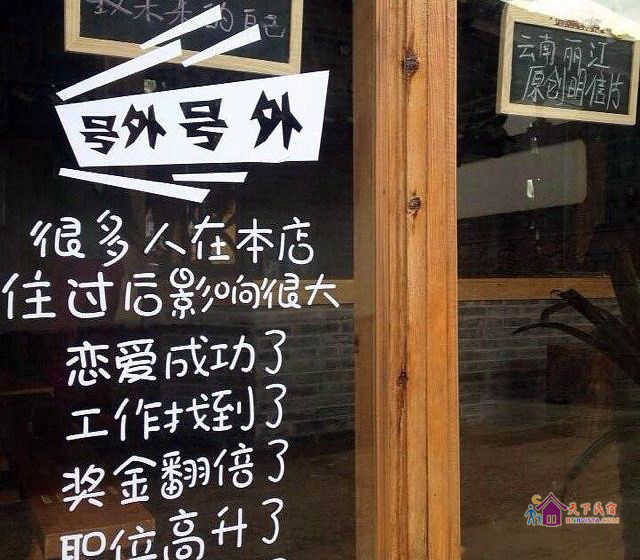 致未来的自己
号外号外
很多人在本店
住过后影响很大
恋爱成功了
工作找到了
奖金翻倍了
职位高升了
云南丽江
原创明信片
天下民宿